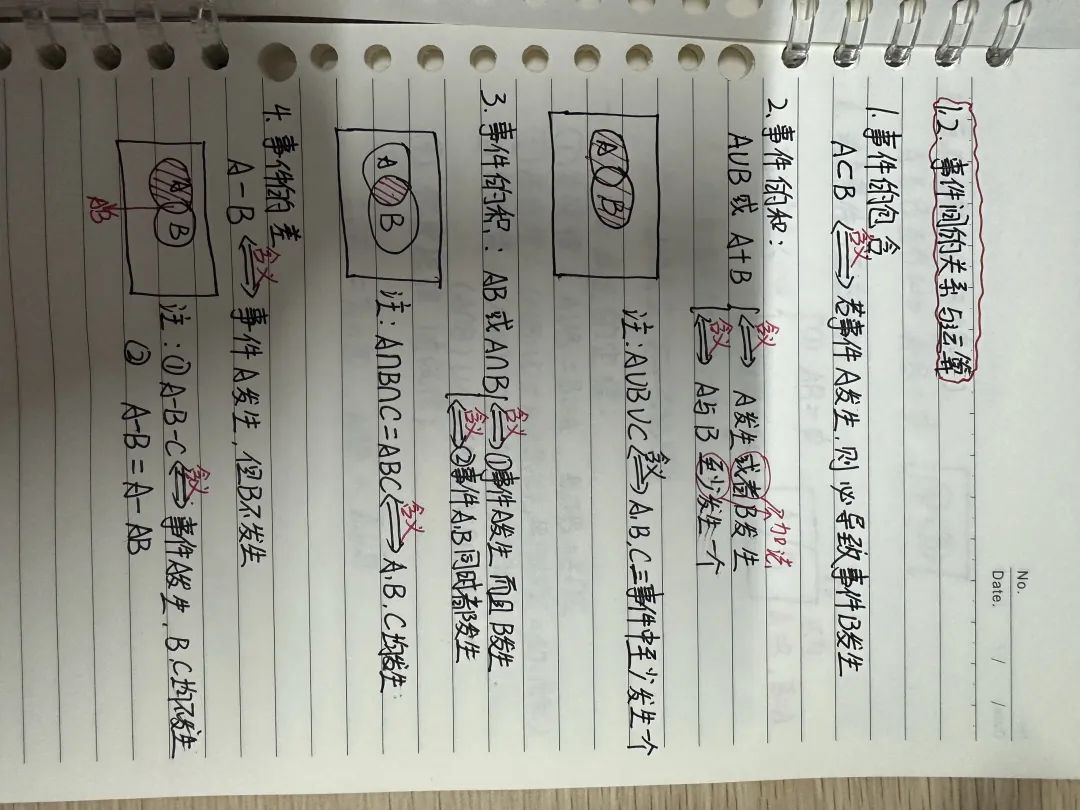 No.
Date. / /
1.2. 事件间的关系与运算
1. 事件的包含
A⊂B 含义 ⟺ 若事件A发生,则必导致事件B发生
2. 事件的和:
A∪B 或 A+B 含义 ⟺ A发生或者B发生 加法
含义 ⟺ A与B至少发生一个
A B
注:A∪B∪C 含义 ⟺ A.B.C三事件中至少发生一个
3. 事件的积:AB或A∩B 含义 ⟺ ①事件A发生而且B发生.
含义 ⟺ ②事件A.B同时都发生
A B
注:A∩B∩C=ABC 含义 ⟺ A.B.C均发生.
4. 事件的差
A-B 含义 ⟺ 事件A发生,但B不发生
A B
AB
注:①A-B-C 含义 ⟺ 事件A发生,B.C均不发生
② A-B=A-AB